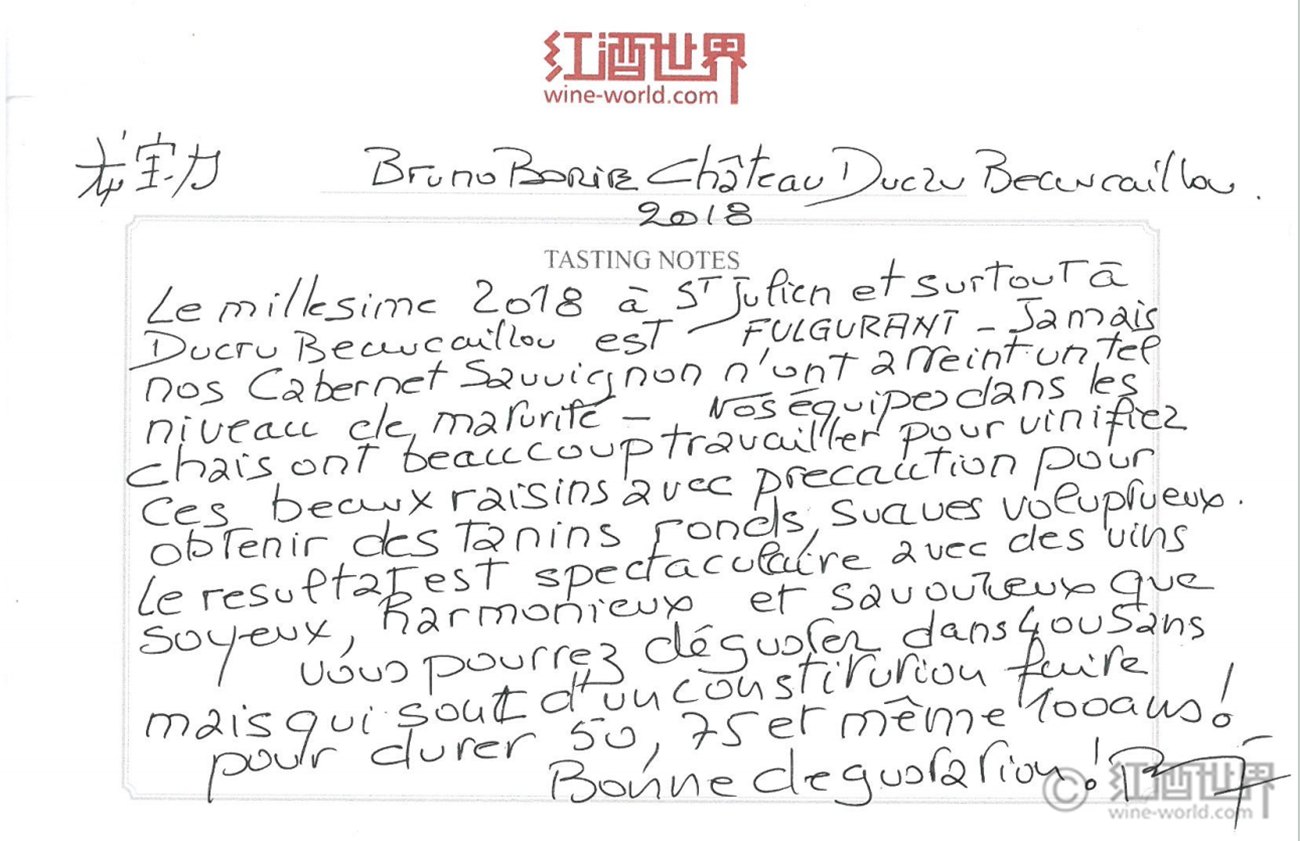 红酒世界
wine-world.com
龙宝力 Bruno BORIE Château Ducru Beaucaillou.
2018
TASTING NOTES
Le millesime 2018 à ST Julien et surtout à
Ducru Beaucaillou est FULGURANT - Jamais
nos Cabernet Sauvignon n'ont atteint un tel
niveau de maturité - Nos équipes dans les
chais ont beaucoup travailler pour vinifiez
ces beaux raisins avec precaution pour
obtenir des tanins ronds, suaves voluptueux.
Le resultat est spectaculaire avec des vins
soyeux, harmonieux et savoureux que
vous pourrez déguster dans 4 ou 5 ans
mais qui sont d'un constitution faire
pour durer 50, 75 et même 100 ans!
Bonne degustation!
© 红酒世界
wine-world.com